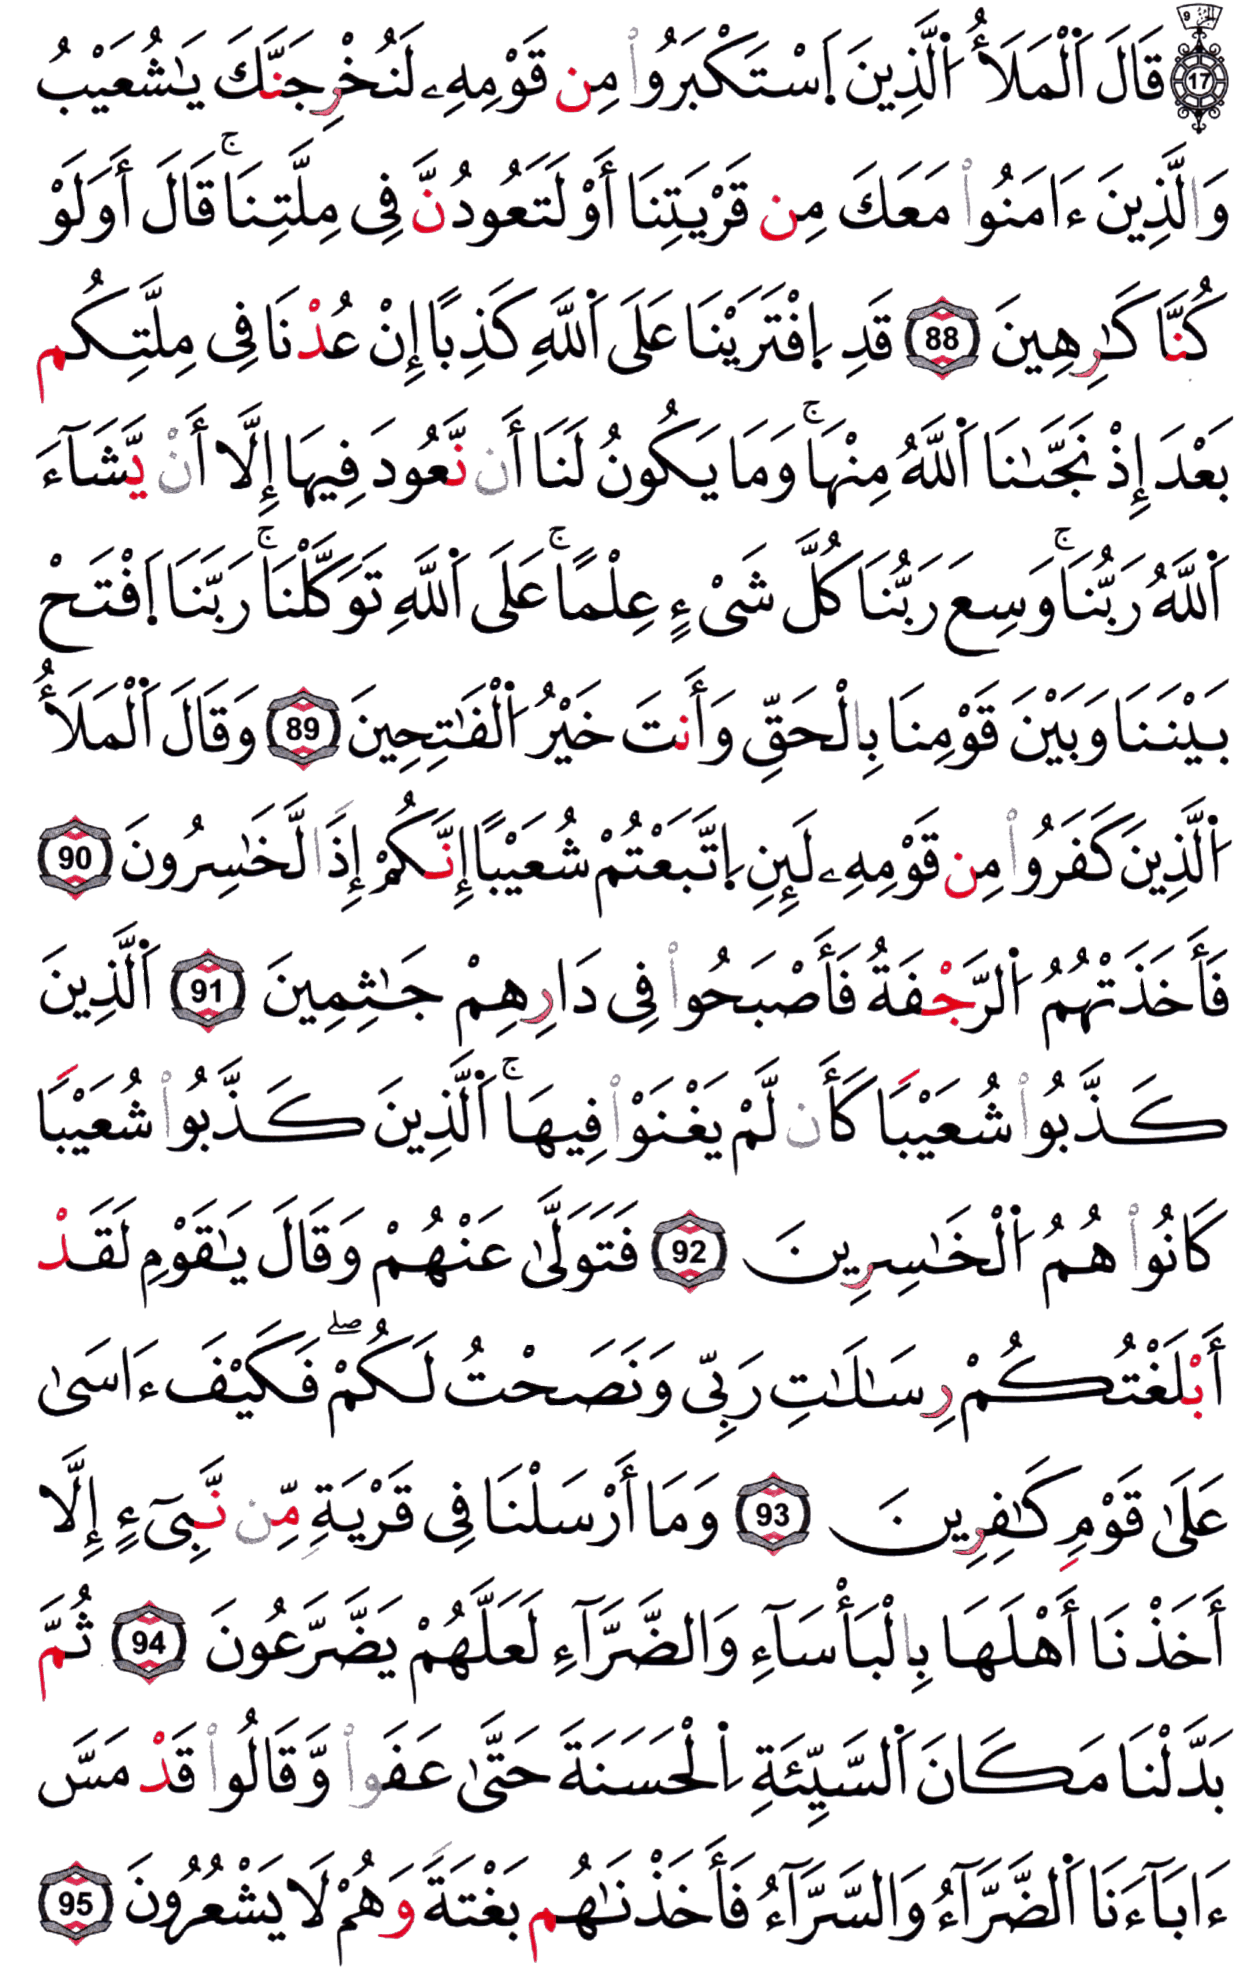 الجزء 9 17 قَالَ اَ۬لْمَلَأُ اُ۬لذِينَ اَ۪سْتَكْبَرُواْ مِن قَوْمِهِۦ لَنُخْرِجَنَّكَ يَٰشُعَيْبُ
وَالذِينَ ءَامَنُواْ مَعَكَ مِن قَرْيَتِنَا أَوْ لَتَعُودُنَّ فِى مِلَّتِنَاۚ قَالَ أَوَلَوْ
كُنَّا كَٰرِهِينَ 88 قَدِ اِ۪فْتَرَيْنَا عَلَى اَ۬للَّهِ كَذِبًا إِنْ عُدْنَا فِى مِلَّتِكُم
بَعْدَ إِذْ نَجَّىٰنَا اَ۬للَّهُ مِنْهَاۚ وَمَا يَكُونُ لَنَا أَن نَّعُودَ فِيهَا إِلَّا أَنْ يَّشَآءَ
اَ۬للَّهُ رَبُّنَاۚ وَسِعَ رَبُّنَا كُلَّ شَىْءٍ عِلْمًاۚ عَلَى اَ۬للَّهِ تَوَكَّلْنَاۚ رَبَّنَا اَ۪فْتَحْ
بَيْنَنَا وَبَيْنَ قَوْمِنَا بِالْحَقِّ وَأَنتَ خَيْرُ اُ۬لْفَٰتِحِينَ 89 وَقَالَ اَ۬لْمَلَأُ
اُ۬لذِينَ كَفَرُواْ مِن قَوْمِهِۦ لَئِنِ اِ۪تَّبَعْتُمْ شُعَيْبًا إِنَّكُمْ إِذًا لَّخَٰسِرُونَ 90
فَأَخَذَتْهُمُ اُ۬لرَّجْفَةُ فَأَصْبَحُواْ فِى دَارِهِمْ جَٰثِمِينَ 91 اَ۬لَّذِينَ
كَذَّبُواْ شُعَيْبًا كَأَن لَّمْ يَغْنَوْاْ فِيهَاۚ اَ۬لَّذِينَ كَذَّبُواْ شُعَيْبًا
كَانُواْ هُمُ اُ۬لْخَٰسِرِينَ 92 فَتَوَلَّىٰ عَنْهُمْ وَقَالَ يَٰقَوْمِ لَقَدْ
أَبْلَغْتُكُمْ رِسَٰلَٰتِ رَبِّى وَنَصَحْتُ لَكُمْۖ فَكَيْفَ ءَاسَىٰ
عَلَىٰ قَوْمٍ كَٰفِرِينَ 93 وَمَا أَرْسَلْنَا فِى قَرْيَةٍ مِّن نَّبِىٓءٍ إِلَّا
أَخَذْنَا أَهْلَهَا بِالْبَأْسَآءِ وَالضَّرَّآءِ لَعَلَّهُمْ يَضَّرَّعُونَ 94 ثُمَّ
بَدَّلْنَا مَكَانَ اَ۬لسَّيِّئَةِ اِ۬لْحَسَنَةَ حَتَّىٰ عَفَواْ وَّقَالُواْ قَدْ مَسَّ
ءَابَآءَنَا اَ۬لضَّرَّآءُ وَالسَّرَّآءُ فَأَخَذْنَٰهُم بَغْتَةً وَهُمْ لَا يَشْعُرُونَ 95